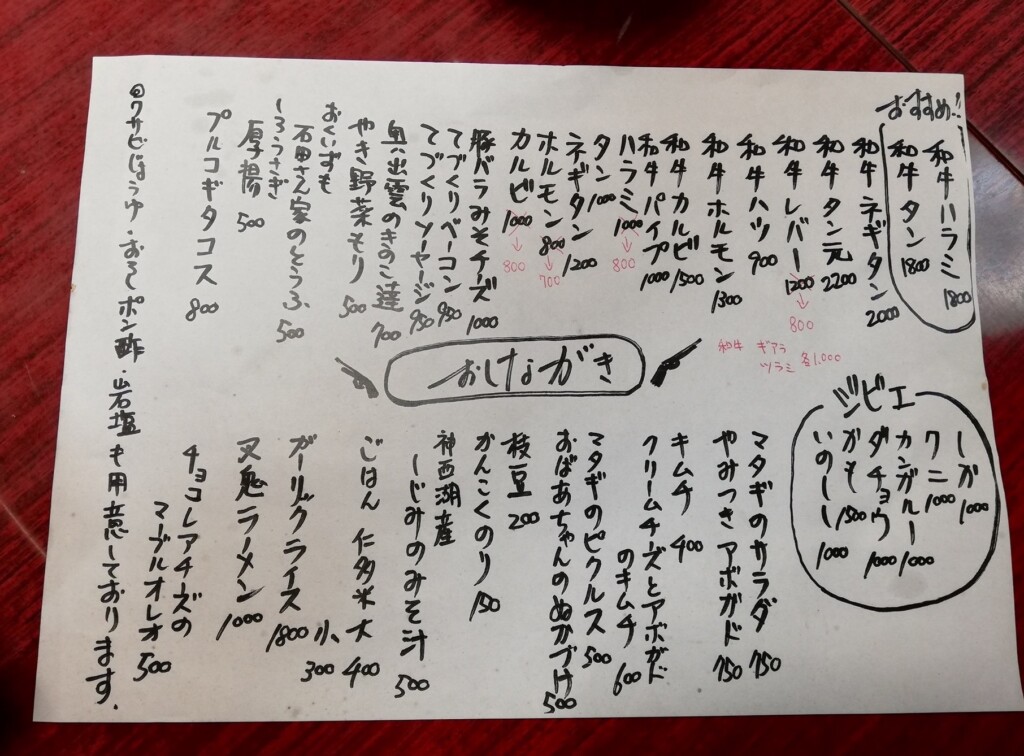 おすすめ!!
和牛ハラミ 1800
和牛タン 1800
和牛ネギタン 2000
和牛タン元 2200
和牛レバー 1200 → 800
和牛ハツ 900
和牛ホルモン 1300
和牛カルビ 1500
和牛パイプ 1000
ハラミ 1000 → 800
タン 1000
ネギタン 1200
ホルモン 800 → 700
カルビ 1000 → 800
豚バラみそチーズ 1000
てづくりベーコン 950
てづくりソーセージ 950
奥出雲のきのこ達 700
やき野菜もり 500
おくいずも
石田さん家のとうふ 500
しろうさぎ
厚揚 500
プルコギタコス 800
和牛 ギアラ
ツラミ 各1.000
おしながき
ジビエ
しか 1000
ワニ 1000
カンガルー 1000
ダチョウ 1000
かも 1500
いのしし 1000
マタギのサラダ 750
やみつきアボガド 750
キムチ 400
クリームチーズとアボガド
のキムチ 600
マタギのピクルス 500
おばあちゃんのぬかづけ 500
枝豆 200
かんこくのり 150
神西湖産
しじみのみそ汁 500
ごはん 仁多米 大 400
小 300
ガーリックライス 1800
又鬼ラーメン 1000
チョコレアチーズの
マーブルオレオ 500
◎ワサビじょうゆ・おろしポン酢・岩塩も用意しております.